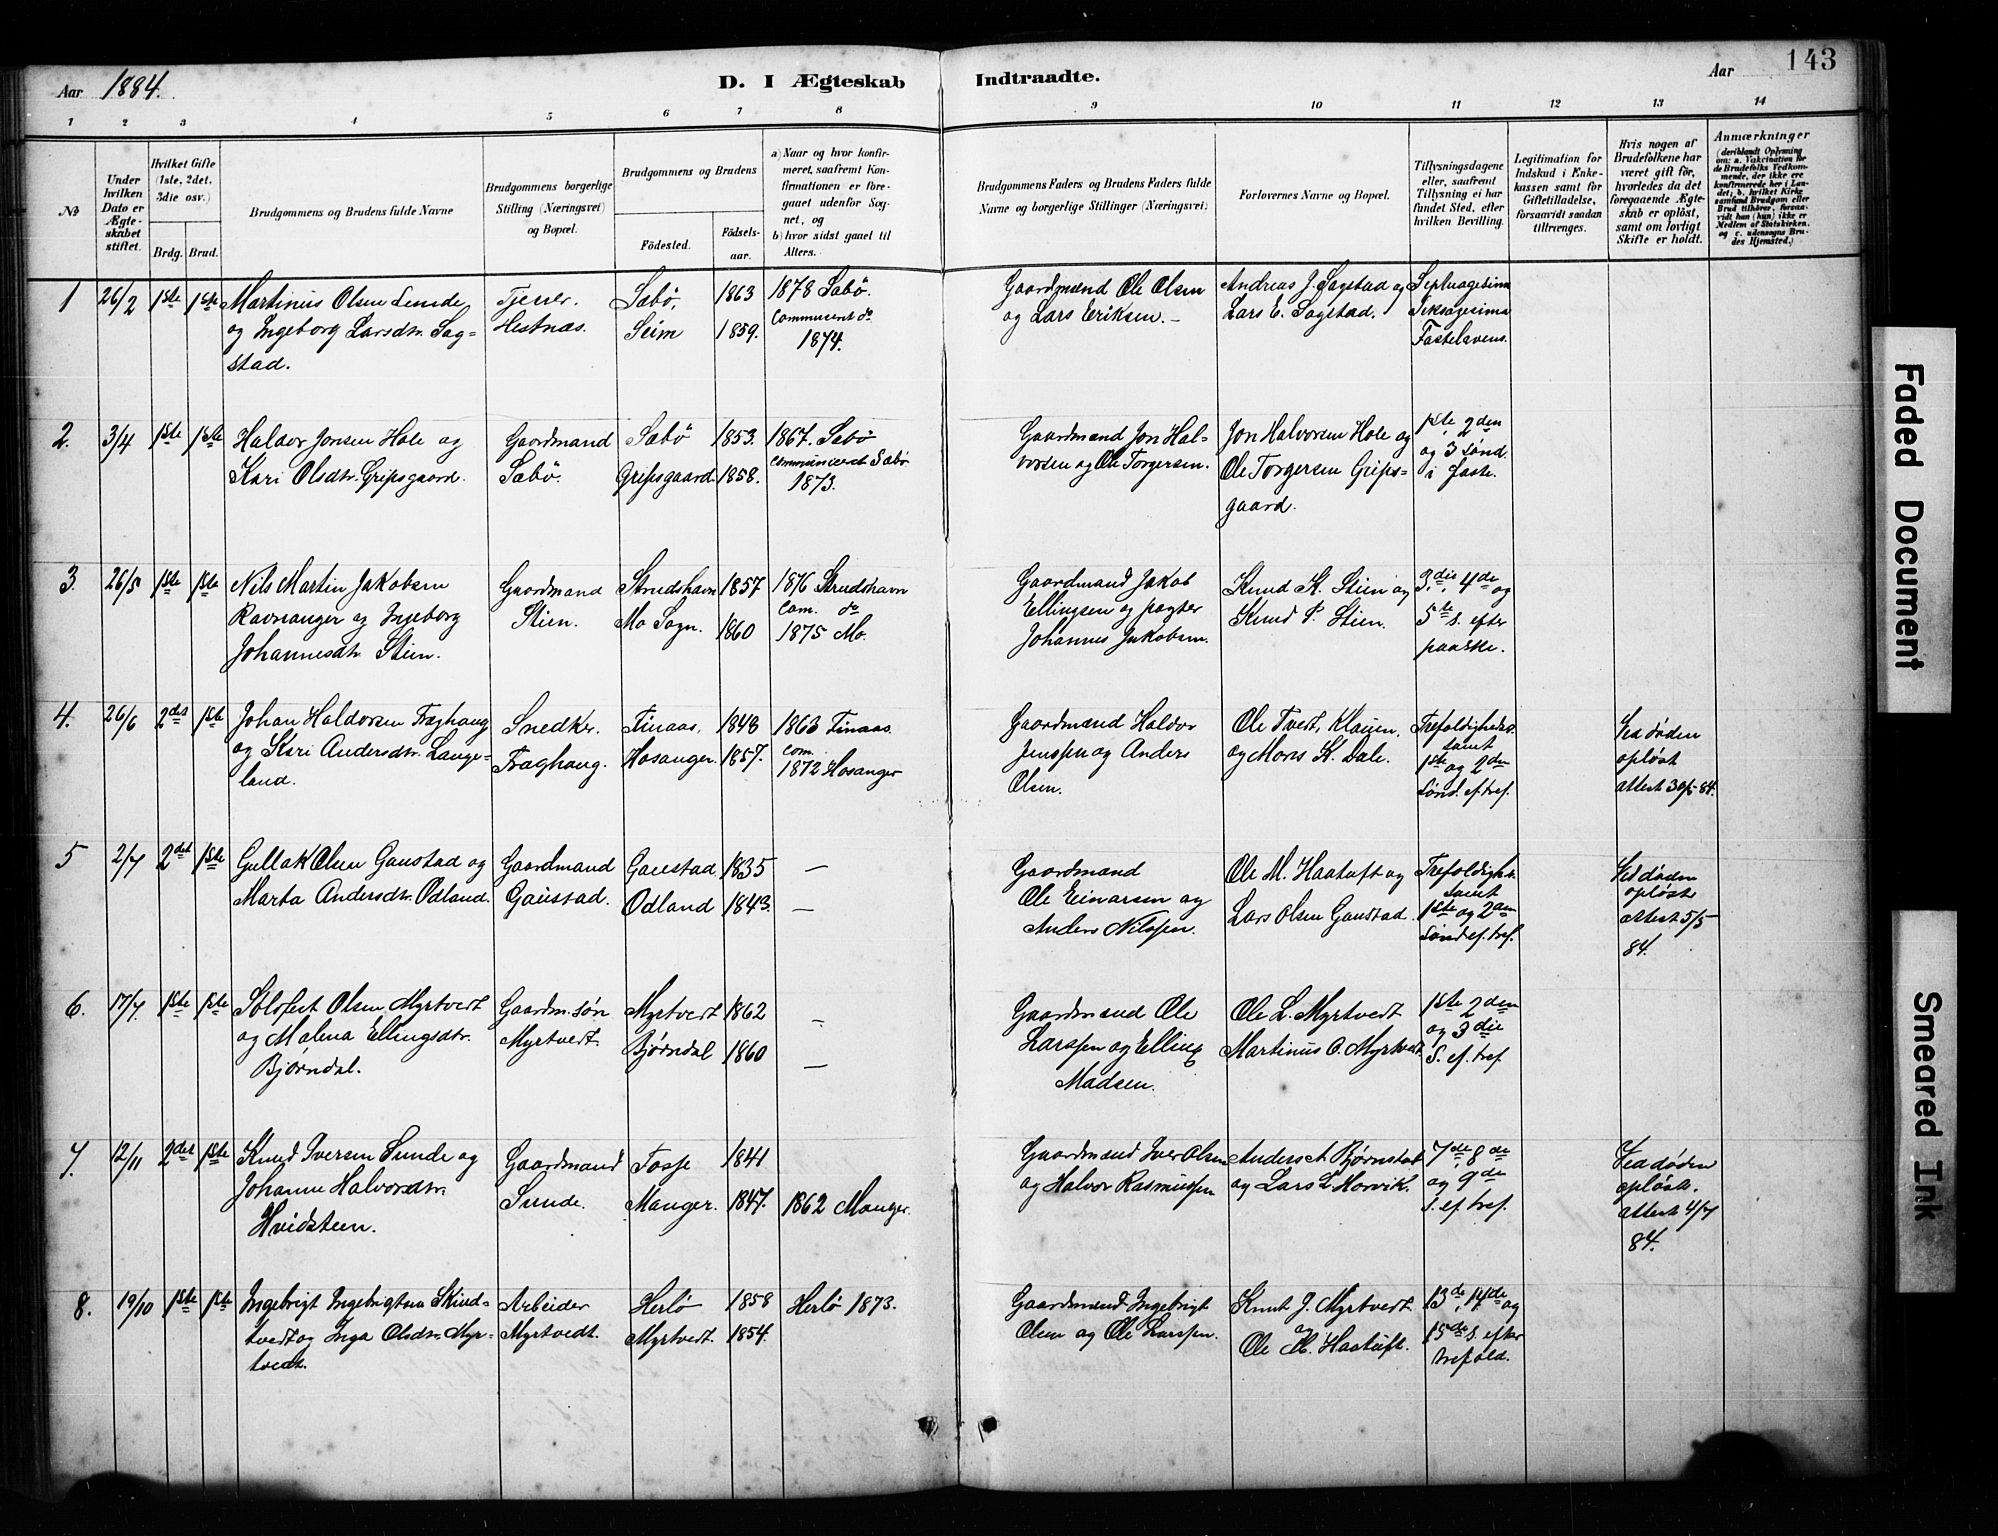 Aar 1884.
D. I Ægteskab Indtraadte.
Aar
143
1 2 3 4 5 6 7 8 9 10 11 12 13 14
№
Under hvilken Dato er Ægteskabet stiftet.
Hvilket Gifte (1ste, 2det, 3die osv.)
Brdg. Brud.
Brudgommens og Brudens fulde Navne
Brudgommens borgerlige Stilling (Næringsvei) og Bopæl.
Brudgommens og Brudens
Födested. Födselsaar.
a) Naar og hvor konfirmeret, saafremt Konfirmationen er foregaaet udenför Sognet, og
b) hvor sidst gaaet til Alters.
Brudgommens Faders og Brudens Faders fulde Navne og borgerlige Stillinger (Næringsvei)
Forlovernes Navne og Bopæl.
Tillysningsdagene eller, saafremt Tillysning ei har fundet Sted, efter hvilken Bevilling.
Legitimation for Indskud i Enkekassen samt for Giftetilladelse, forsaavidt saadan tiltrænges.
Hvis nogen af Brudefolkene har været gift för, hvorledes da det foregaaende Ægteskab er oplöst, samt om lovligt Skifte er holdt.
Anmærkninger (deriblandt Oplysning om: a. Vakcination for de Brudefolks Vedkommende, der ikke ere konfirmerede her i Landet; b. hvilket Kirkesamfund Brudgom eller Brud tilhörer, forsaavidt han (hun) ikke er Medlem af Statskirken, og c. udensogns Brudes Hjemsted.)
1 26/2 1ste 1ste Martinus Olsen Lunde Tjener. Sæbö, 1863 1878 Sæbö. Gaardmænd Ole Olsen Andreas J. Sagstad og Septuagesima
og Ingeborg Larsdtr. Sag= Hestnæs. Seim 1859. Communicent do og Lars Eriksen.— Lars E. Sagstad. Seksagesima
stad. 1874. Fastelavens.
2. 3/4 1ste 1ste Haldor Jonsen Hole og Gaardmand Sæbö 1853. 1867. Sæbö Gaardmænd Jon Hal= Jon Halvorsen Hole og 1ste, 2den
Kari Olsdtr. Gripsgaard. Sæbö. Gripsgaard. 1858. Communicent Sæbö vorsen og Ole Torgersen. Ole Torgersen Grips= og 3 Sönd.
1873. gaard. i faste.
3. 26/5 1ste 1ste Nils Martin Jakobsen Gaardmand Strudshavn 1857 1876 Strudshavn Gaardmand Jakob Knud K. Stien og 3die, 4de og
Ravnanger og Ingeborg Stien. Mo Sogn. 1860 Com. do Ellingsen og pagter Knud P. Stien. 5te s. efter
Johannesdtr. Stien. 1875 Mo. Johannes Jakobsen. paaske.
4. 26/6 2det 1ste Johan Haldorsen Fræghaug Snedker. Finaas, 1848 1863 Finaas. Gaardmænd Haldor Ole Tvert, Klauen, Trefoldigheds. Ved döden
og Kari Andersdtr. Lange= Fræghaug. Hosanger. 1857. Com. Jenssen og Anders og Mons K. Dale. samt oplöst
land. 1872 Hosanger Olsen. 1ste og 2den attest 30/5 84.
Sönd. ef. tref.
5 2/7 2det 1ste Gullak Olsen Gaustad og Gaardmand Gaustad. 1835 — Gaardmand Ole M. Haatuft og Trefoldigh. Ved döden
Marta Andersdtr. Odland. Gaustad. Odland 1843. — Ole Einarsen og Lars Olsen Gaustad. samt oplöst
Anders Nilssen. 1ste og 2den attest 5/5
Sönd ef. tref. 84.
6. 17/7. 1ste 1ste Solsfest Olsen Myrtvedt Gaardm.sön Myrtvedt 1862 — Gaardmænd Ole Ole L. Myrtvedt 1ste 2den
og Malena Ellingsdtr. Myrtvedt. Bjørndal 1860 — Larssen og Elling Martinus O. Myrtvedt og 3die
Bjørndal. Madsen. S. ef. tref.
7. 12/11 2det 1ste Knud Iversen Sunde og Gaardmand Fosse 1841 Gaardmænd Iver Olsen Anders A Bjørnstad 7de, 8de Ved döden
Johanne Halvorsdtr. Sunde. Manger. 1847. 1862 Manger. og Halvor Rasmussen og Lars L. Horvik. og 9de oplöst.
Hvidsteen. s. ef. tref. attest 4/7
84.
8. 19/10 1ste 1ste Ingebrigt Ingebrigtsen Skind= Arbeider Herlö 1858 Herlö 1873. Gaardmænd Ingebrigt Knut J. Myrtvedt. 13de, 14de og
tvedt og Inga Olsdtr. Myr= Myrtvedt. Myrtvedt. 1854. Olsen og Ole Larssen. og Ole M. Haatuft. 15de s. efter
tvedt. trefold.
Faded Document
Smeared Ink